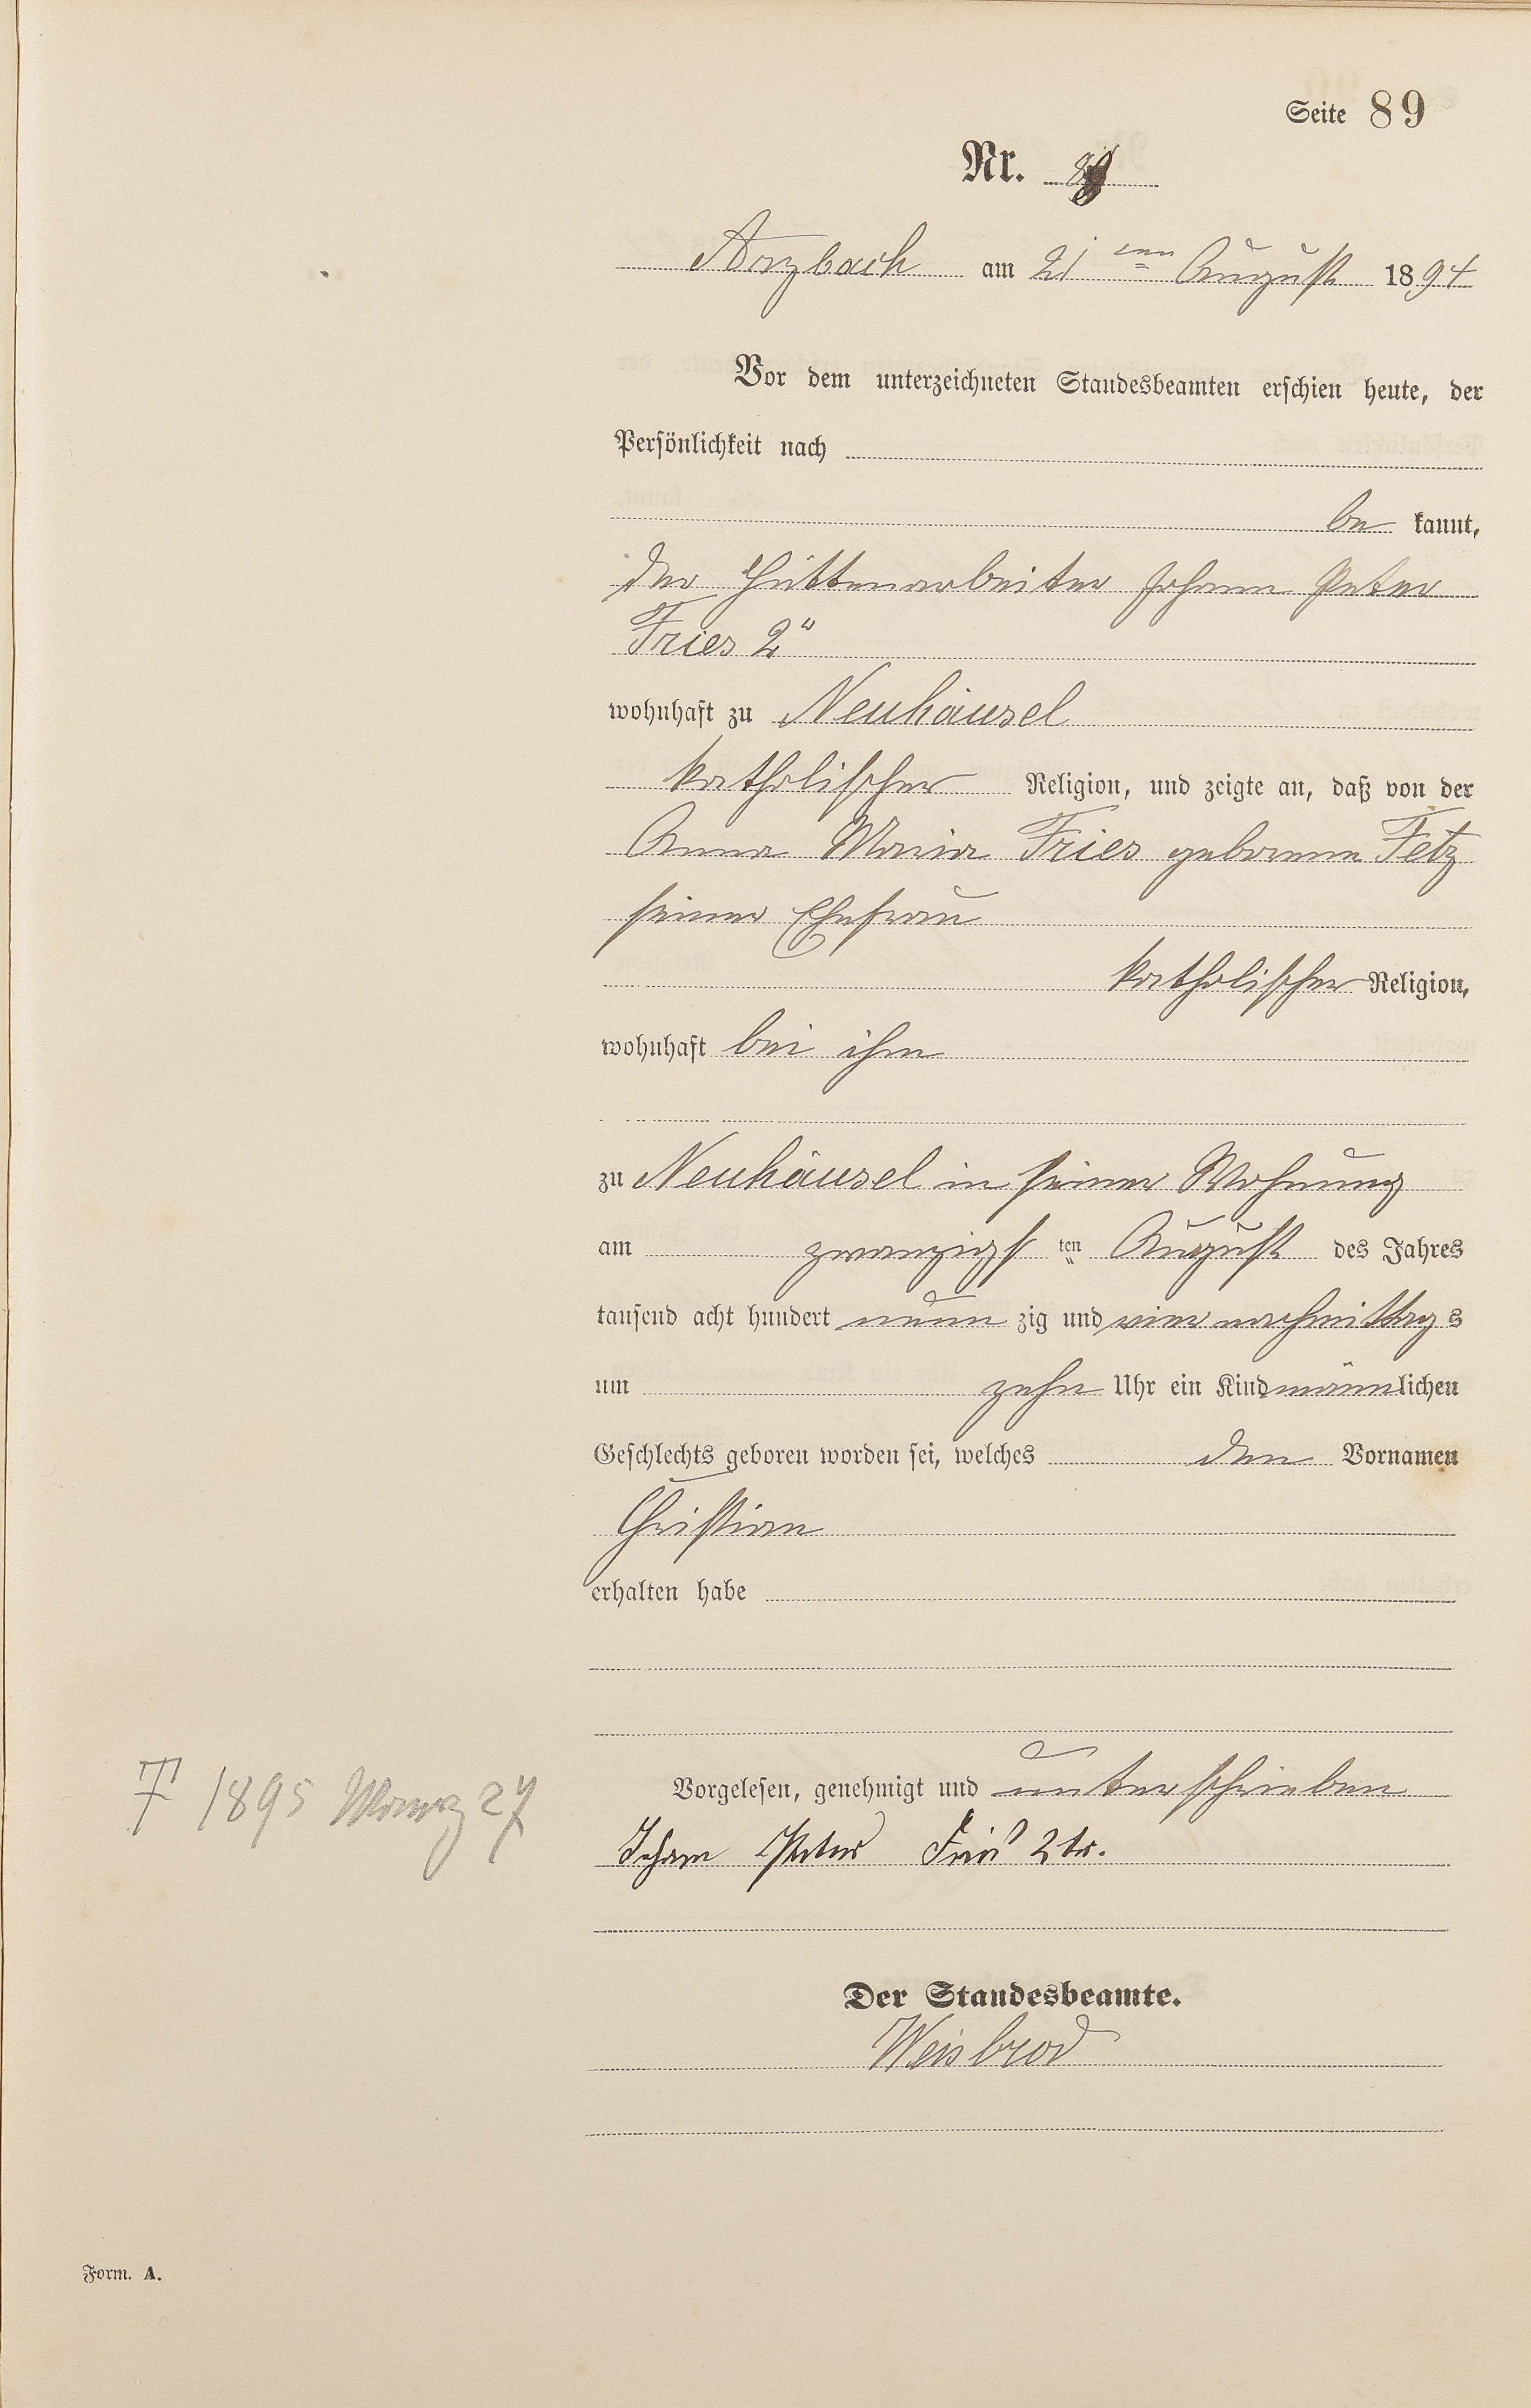 Seite 89
Nr. 89
Arzbach am 21 ten August 1894
Vor dem unterzeichneten Standesbeamten erschien heute, der
Persönlichkeit nach
be kannt,
der Hüttenarbeiter Johann Peter
Fries 2"
wohnhaft zu Neuhäusel
katholischer Religion, und zeigte an, daß von der
Anna Maria Fries geborene Fetz
seiner Ehefrau
katholischer Religion,
wohnhaft bei ihm
zu Neuhäusel in seiner Wohnung
am zwanzigs ten August des Jahres
tausend acht hundert neun zig und vier nachmittags
um zehn Uhr ein Kind männlichen
Geschlechts geboren worden sei, welches den Vornamen
Christian
erhalten habe
Vorgelesen, genehmigt und unterschrieben
† 1895 Maerz 27
Johann Peter Fries 2tr.
Der Standesbeamte.
Weisbrod
Form. A.